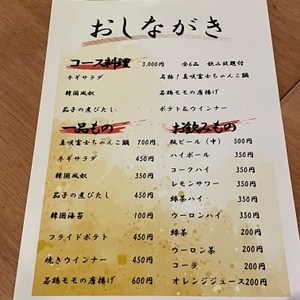 おしながき
コース料理 3,000円 全6品 飲み放題付
ネギサラダ 名物！直咲富士ちゃんこ鍋
韓国風奴 若鶏モモの唐揚げ
茄子の煮びたし ポテト&ウインナー
一品もの
直咲富士ちゃんこ鍋 700円
ネギサラダ 450円
韓国風奴 350円
茄子の煮びたし 450円
韓国海苔 100円
フライドポテト 450円
焼きウインナー 450円
若鶏モモの唐揚げ 600円
お飲みもの
瓶ビール（中） 500円
ハイボール 350円
コークハイ 350円
レモンサワー 350円
緑茶ハイ 350円
ウーロンハイ 350円
緑茶 200円
ウーロン茶 200円
コーラ 200円
オレンジジュース 200円